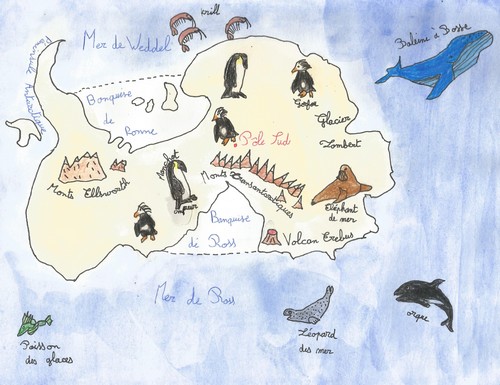 krill
Mer de Weddel
Baleine à Bosse
Péninsule Antarctique
Banquise
de
Ronne
Gorfou
Glacier
Lambert
Pôle Sud
Monts Ellsworth
Manchot
empereur
Monts Transantarctiques
Eléphant
de mer
Banquise
de Ross
Volcan Erebus
Mer de Ross
orque
Poisson
des glaces
Léopard
des mer